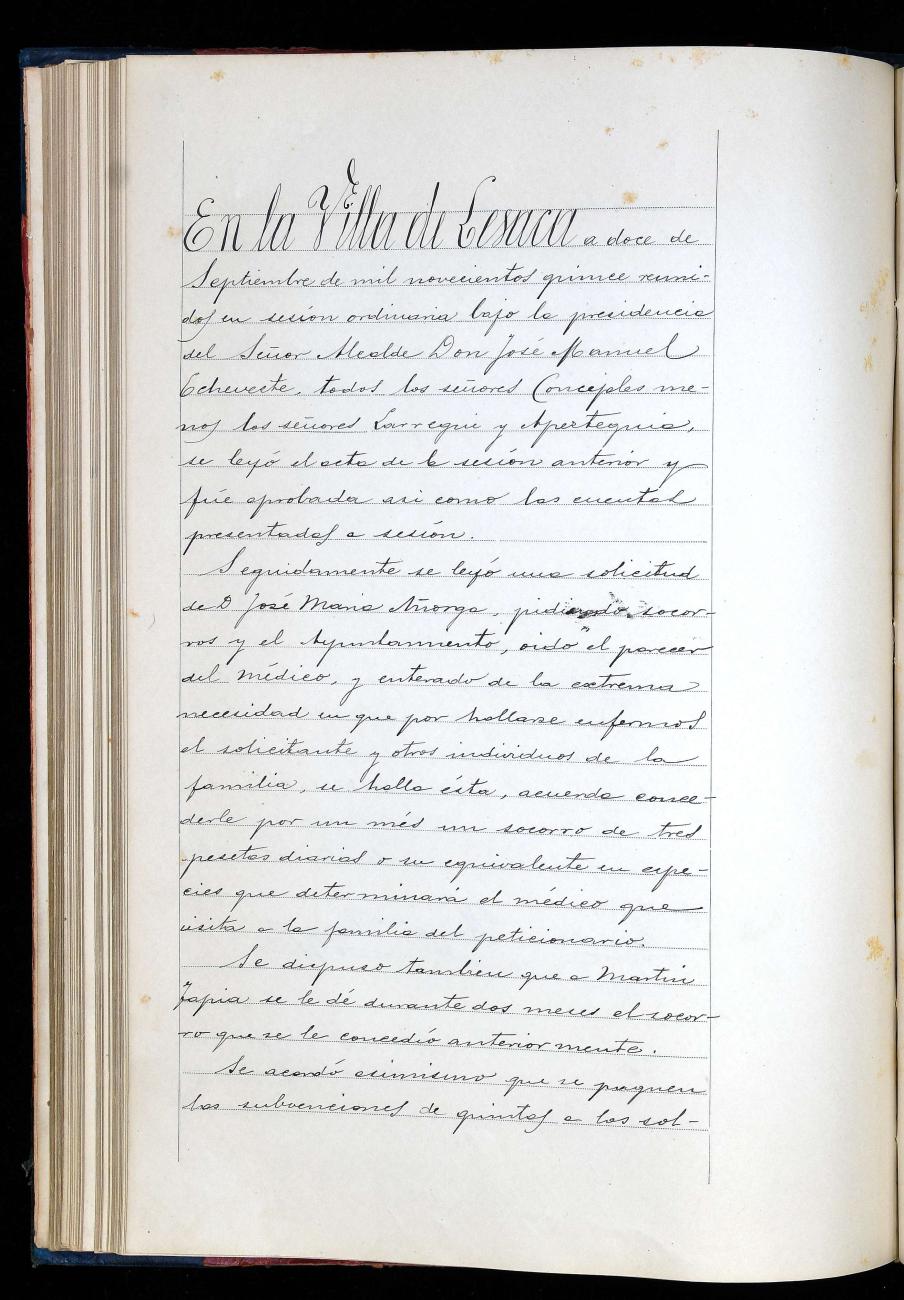 En la Villa de Lesaca a doce de
Septiembre de mil novecientos quince reuni-
dos en sesión ordinaria bajo la presidencia
del Señor Alcalde Don José Manuel
Echeveste, todos los señores Concejales me-
nos los señores Larregui y Apezteguia,
se leyó el acta de la sesión anterior y
fué aprobada asi como las cuentas
presentadas a sesión.
Seguidamente se leyó una solicitud
de D José Maria Añorga, pidiendo socor-
ros y el Ayuntamiento, oido el parecer
del médico, y enterado de la extrema
necesidad en que por hallarse enfermos
el solicitante y otros individuos de la
familia, se halla ésta, acuerda conce-
derle por un més un socorro de tres
pesetas diarias o su equivalente en espe-
cies que determinará el médico que
visita a la familia del peticionario.
Se dispuso tambien que a Martin
Tapia se le dé durante dos meses el socor-
ro que se le concedió anteriormente.
Se acordó asimismo que se paguen
las subvenciones de quintas a los sol-